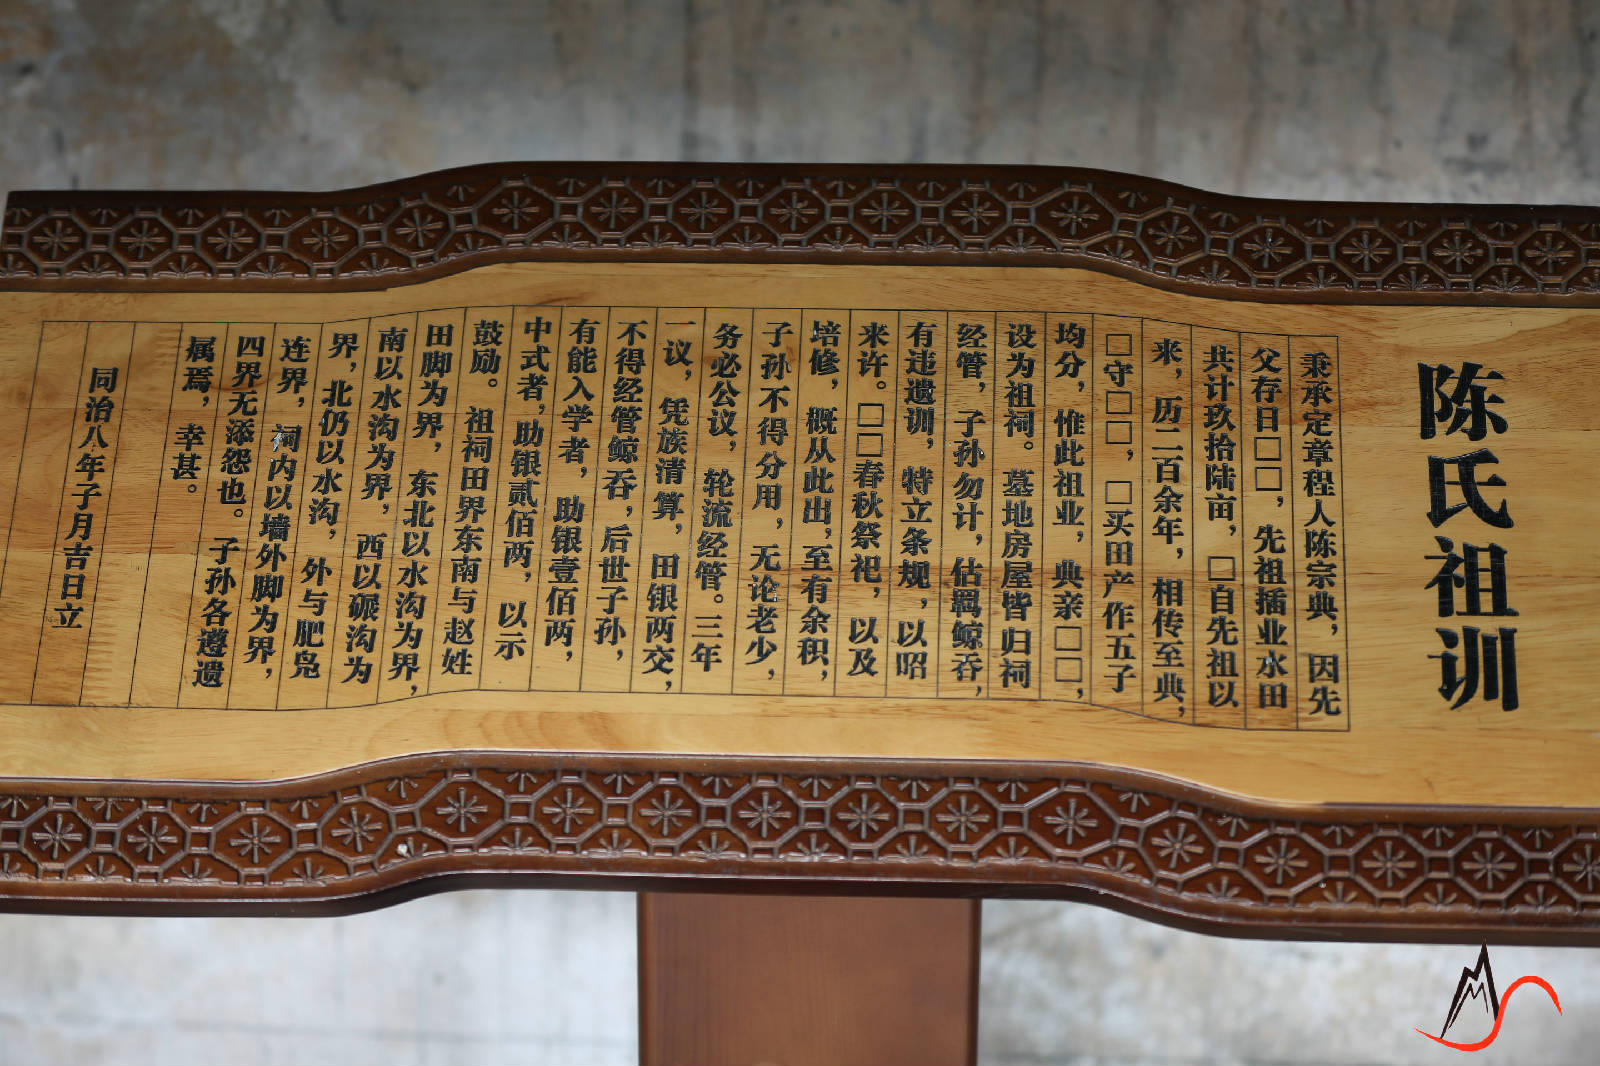 陈氏祖训
秉承定章程人陈宗典，因先
父存日□□，先祖插业水田
共计玖拾陆亩，□自先祖以
来，历二百余年，相传至典，
□守□□，□买田产作五子
均分，惟此祖业，典亲□□，
设为祖祠。墓地房屋皆归祠
经管，子孙勿计，估羁鲸吞，
有违遗训，特立条规，以昭
来许。□□春秋祭祀，以及
培修，概从此出，至有余积，
子孙不得分用，无论老少，
务必公议，轮流经管。三年
一议，凭族清算，田银两交，
不得经管鲸吞，后世子孙，
有能入学者，助银壹佰两，
中式者，助银贰佰两，以示
鼓励。祖祠田界东南与赵姓
田脚为界，东北以水沟为界，
南以水沟为界，西以碾沟为
界，北仍以水沟，外与肥凫
连界，祠内以墙外脚为界，
四界无添怨也。子孙各遵遗
属焉，幸甚。
同治八年子月吉日立